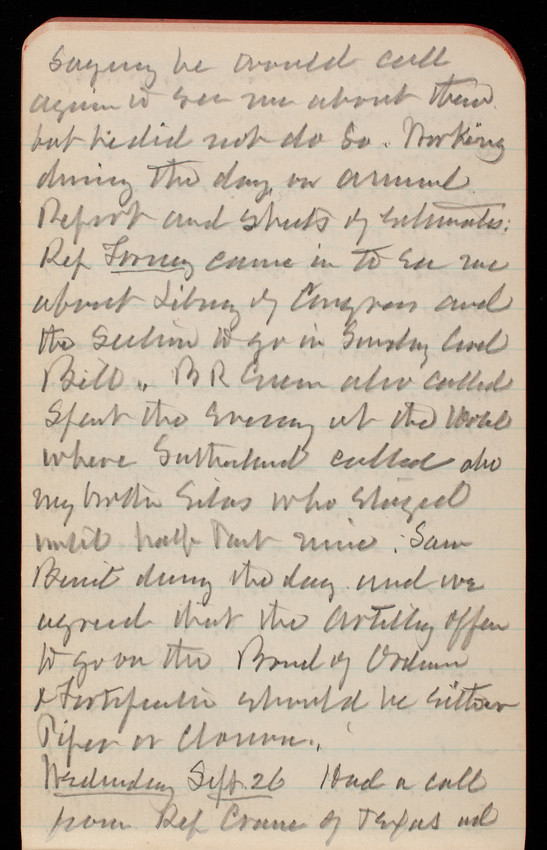 Saying he would call
again to see me about them
but he did not do so. Working
during the day on annual
Report and sheets of estimates.
Rep Forney came in to see me
about Library of Congress and
the section to go in Sunday Civil
Bill. B R Green also called
Spent the Evening at the Hotel
where Sutherland called also
my brother Silas who stayed
until half Past nine. Saw
Benet during the day and we
agreed that the Artillery Officer
to go on the Board of Ordnance
& Fortification should be either
Piper or Closson.
Wednesday Sept. 26 Had a call
from Rep Crane of Texas and